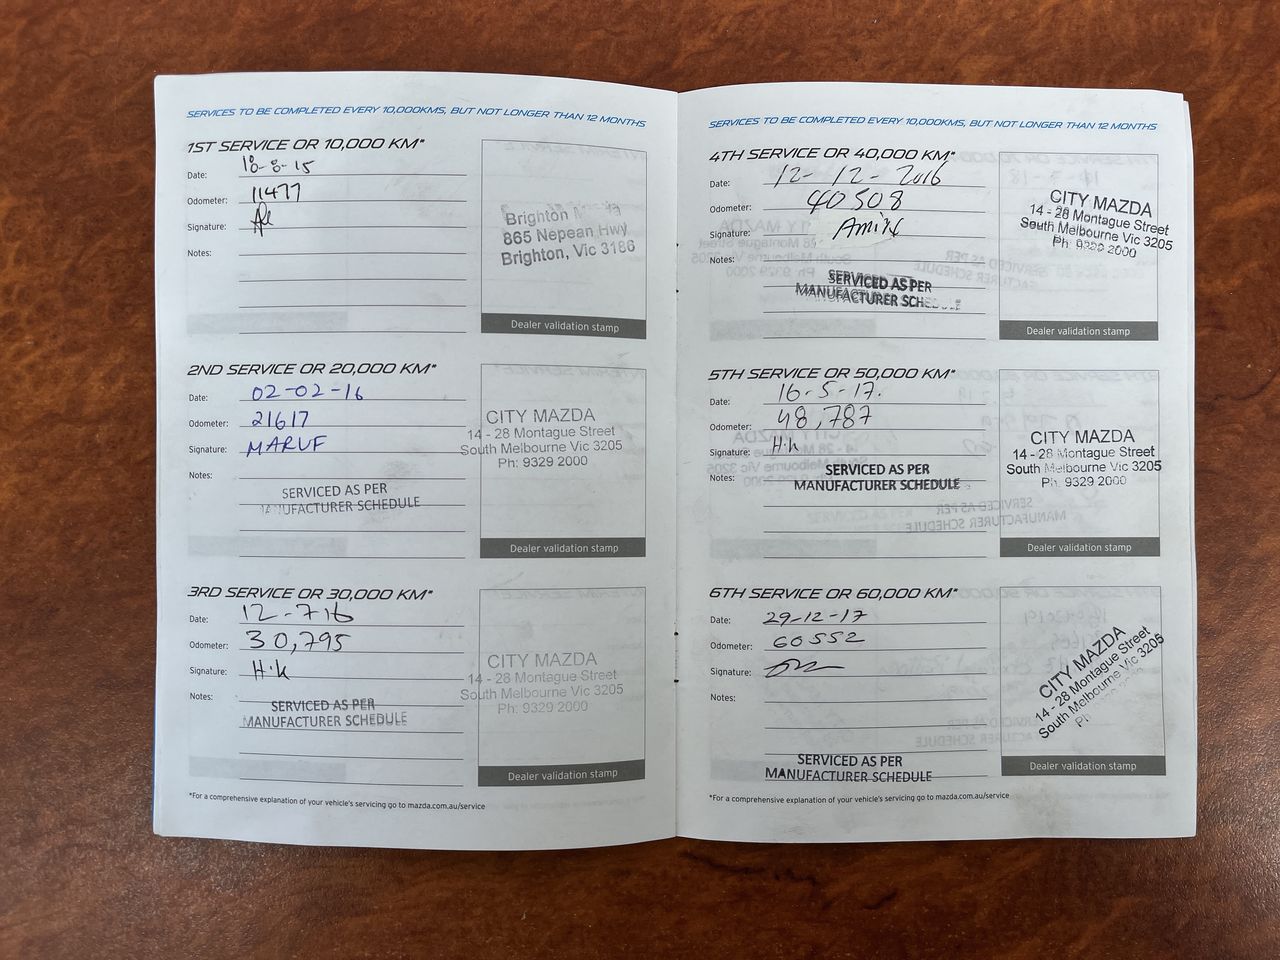 SERVICES TO BE COMPLETED EVERY 10,000KMS, BUT NOT LONGER THAN 12 MONTHS
1ST SERVICE OR 10,000 KM*
Date: 18-8-15
Odometer: 11477
Signature:
Notes:
Brighton
865 Nepean Hwy
Brighton, Vic 3186
Dealer validation stamp
2ND SERVICE OR 20,000 KM*
Date: 02-02-16
Odometer: 21617
Signature: MARUF
Notes:
SERVICED AS PER
MANUFACTURER SCHEDULE
CITY MAZDA
14 - 28 Montague Street
South Melbourne Vic 3205
Ph: 9329 2000
Dealer validation stamp
3RD SERVICE OR 30,000 KM*
Date: 12-716
Odometer: 30,795
Signature: H.K
Notes:
SERVICED AS PER
MANUFACTURER SCHEDULE
CITY MAZDA
14 - 28 Montague Street
South Melbourne Vic 3205
Ph: 9329 2000
Dealer validation stamp
*For a comprehensive explanation of your vehicle's servicing go to mazda.com.au/service
SERVICES TO BE COMPLETED EVERY 10,000KMS, BUT NOT LONGER THAN 12 MONTHS
4TH SERVICE OR 40,000 KM*
Date: 12-12-2016
Odometer: 40508
Signature:
Notes:
SERVICED AS PER
MANUFACTURER SCHEDULE
CITY MAZDA
14 - 28 Montague Street
South Melbourne Vic 3205
Ph: 9329 2000
Dealer validation stamp
5TH SERVICE OR 50,000 KM*
Date: 16-5-17.
Odometer: 48,787
Signature: H.K
Notes:
SERVICED AS PER
MANUFACTURER SCHEDULE
CITY MAZDA
14 - 28 Montague Street
South Melbourne Vic 3205
Ph: 9329 2000
Dealer validation stamp
6TH SERVICE OR 60,000 KM*
Date: 29-12-17
Odometer: 60552
Signature:
Notes:
SERVICED AS PER
MANUFACTURER SCHEDULE
CITY MAZDA
14 - 28 Montague Street
South Melbourne Vic 3205
Ph:
Dealer validation stamp
*For a comprehensive explanation of your vehicle's servicing go to mazda.com.au/service